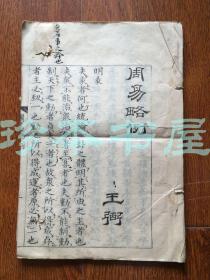 周易略例
王弼
明彖
夫彖者何也統論一卦之體明其所由之主者也
夫衆不能治衆治衆者至寡者也夫動不能制動
制天下之動者貞夫一者也故衆之所以得咸存
者主必致一也動之所以得咸運者原必无二也
珍本书屋